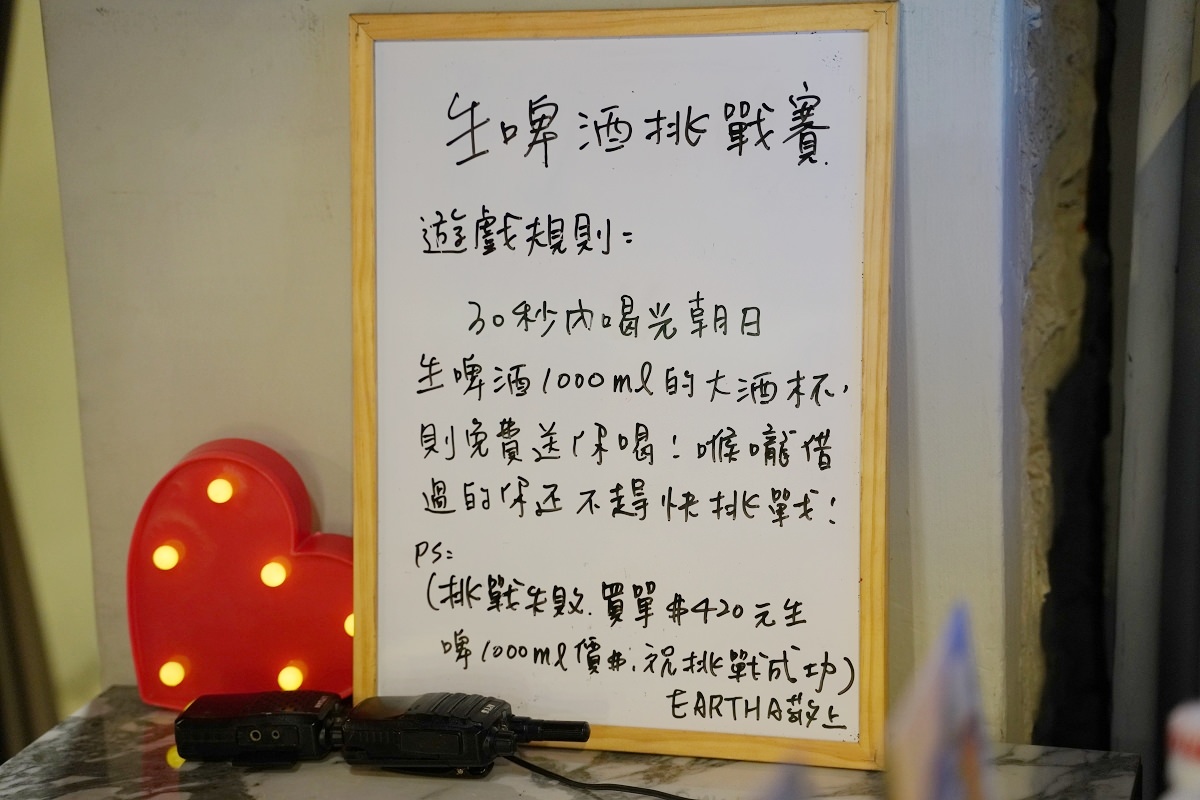 生啤酒挑戰賽
遊戲規則：
30秒內喝光朝日
生啤酒1000ml的大酒杯，
則免費送你喝！喉嚨借
過的你还不趕快挑戰！
PS：
(挑戰失敗.買單$420元生
啤1000ml價$，祝挑戰成功)
EARTHA敬上